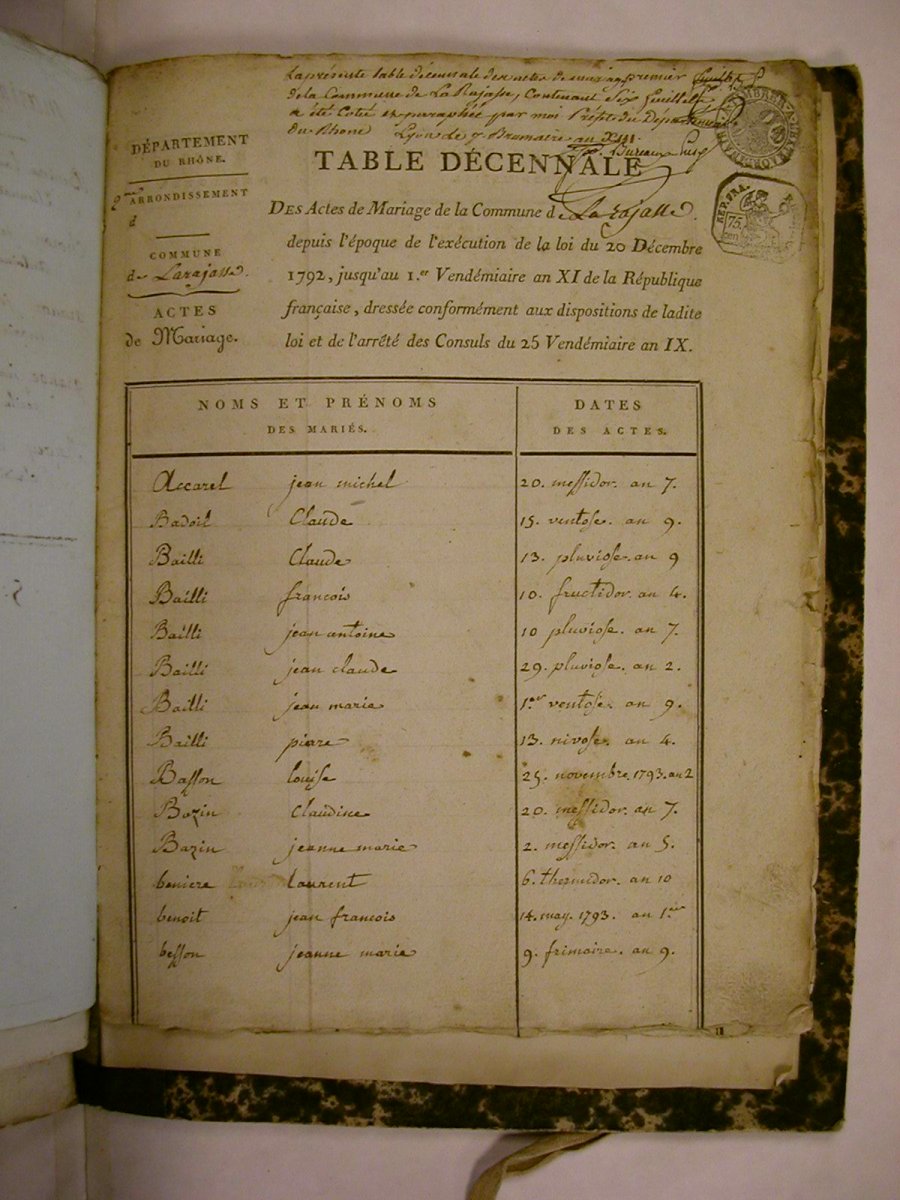 La présente table décennale des actes de mariage premier feuillet
de la Commune de La Rajasse, Contenant Six feuillets
a été Cotée et paraphée par moi Préfet du Département
du Rhone Lyon le 7 Brumaire an XIII
Bureaux
DÉPARTEMENT
DU RHÔNE.
2me ARRONDISSEMENT
COMMUNE
de Larajasse.
ACTES
de Mariage.
TABLE DÉCENNALE
DES Actes de Mariage de la Commune de Larajasse.
depuis l'époque de l'exécution de la loi du 20 Décembre
1792, jusqu'au 1.er Vendémiaire an XI de la République
française, dressée conformément aux dispositions de ladite
loi et de l'arrêté des Consuls du 25 Vendémiaire an IX.
REP. FRA.
75.
cen
NOMS ET PRÉNOMS DES MARIÉS.
DATES DES ACTES.
Accarel jean michel 20. messidor. an 7.
Badoil Claude 15. ventose. an 9.
Bailli Claude 13. pluviose. an 9
Bailli francois 10. fructidor. an 4.
Bailli jean antoine 10 pluviose. an 7.
Bailli jean claude 29. pluviose. an 2.
Bailli jean marie 1.er ventose. an 9.
Bailli piere 13. nivose. an 4.
Basson louise 25. novembre. 1793. an 2
Bazin Claudine 20. messidor. an 7.
Bazin jeanne marie 2. messidor. an 5.
beniere laurent 6. thermidor. an 10
benoit jean francois 14. may. 1793. an 1.er
besson jeanne marie 9. frimaire. an 9.